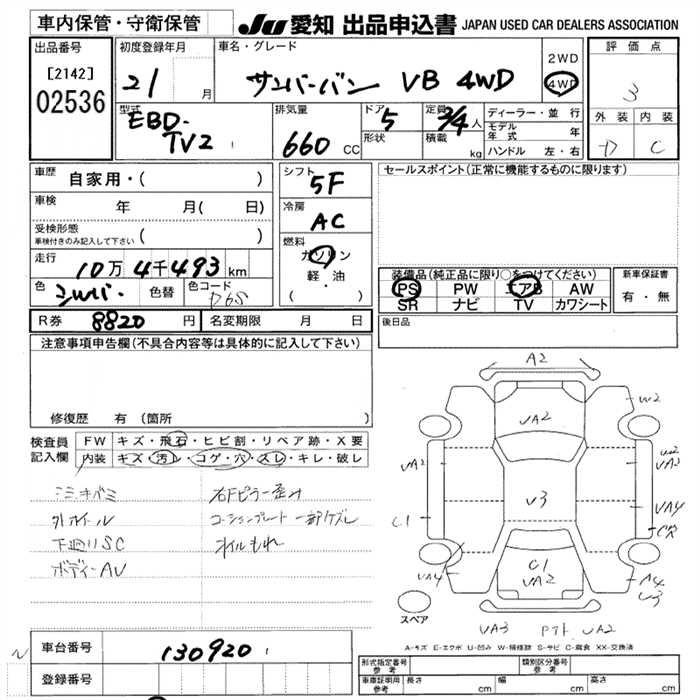 車内保管・守衛保管
JU 愛知 出品申込書 JAPAN USED CAR DEALERS ASSOCIATION
出品番号
[2142]
02536
初度登録年月
21 月
車名・グレード
サンバーバン VB 4WD
2WD
4WD
評価点
3
外装 内装
D C
型式
EBD-
TV2
排気量
660 CC
ドア
5
形状
定員
3/4人
積載 kg
ディーラー・並行
モデル年式 年
ハンドル 左・右
車歴
自家用・( )
車検 年 月( 日)
受検形態
車検付きのみ記入して下さい ( )
走行
10万 4千493 km
色
シルバー
色替
色コード
D6S
シフト
5F
冷房
AC
燃料
ガソリン
軽・油
( )
セールスポイント(正常に機能するものに限ります)
装備品(純正品に限り○をつけてください)
PS PW エアB AW
SR ナビ TV カワシート
新車保証書
有・無
R券 8820 円
名変期限 月 日
後日品
注意事項申告欄(不具合内容等は具体的に記入して下さい)
修復歴 有(箇所
検査員
記入欄
FW キズ・飛石・ヒビ割・リペア跡・X要
内装 キズ・汚レ・コゲ・穴・スレ・キレ・破レ
シミ、キバミ
外ホイール
下廻りSC
ボディーAU
右Fピラー歪み
コーションプレート一部ケズレ
オイルもれ
A2
VA2
W2
VA2
VA2
V3
C1
VA4
C1
VA2
VA4
A4
V3
スペア
VA3
VA2
A-キズ E-エクボ U-凹み W-補修跡 S-サビ C-腐食 XX-交換済
車台番号
130920
登録番号
形式指定番号
参考
類別区分番号
参考
車庫証明用
参考
長さ cm
幅 cm
高さ cm